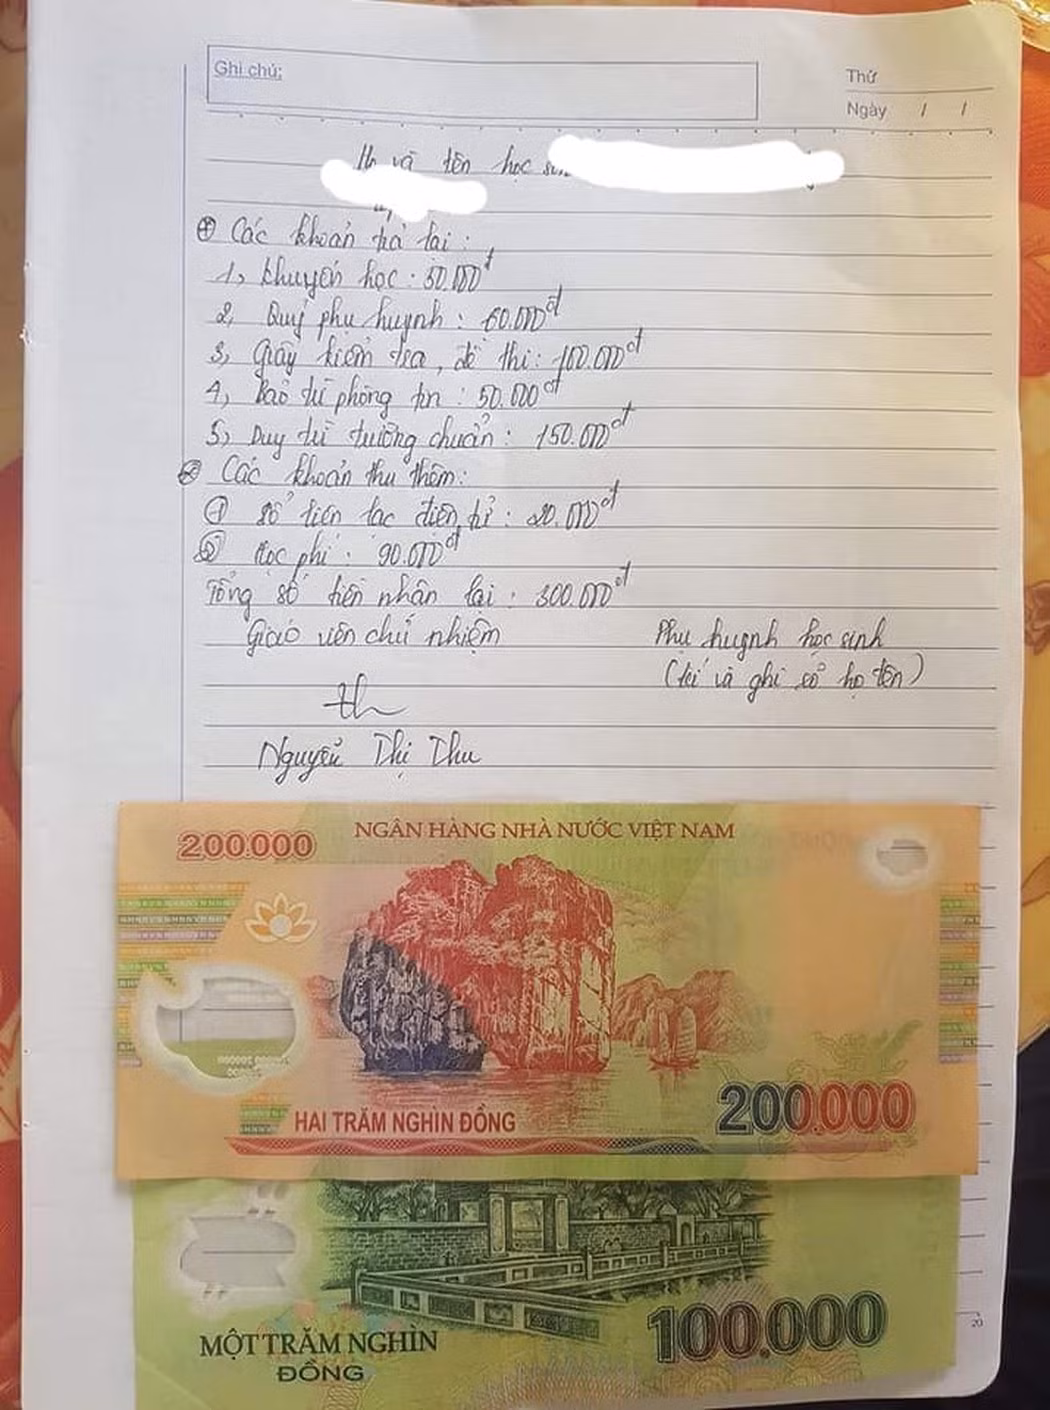 Ghi chú:
Thứ
Ngày / /
Họ và tên học
⊕ Các khoản trả lại:
1, Khuyến học: 50.000đ
2, Quỹ phụ huynh: 60.000đ
3, Giấy kiểm tra, đề thi: 100.000đ
4, Bảo trì phòng tin: 50.000đ
5, Duy trì trường chuẩn: 150.000đ
Các khoản thu thêm:
① Sổ liên lạc điện tử: 20.000đ
② Học phí: 90.000đ
Tổng số tiền nhận lại: 300.000đ
Giáo viên chủ nhiệm
Phụ huynh học sinh
(kí và ghi rõ họ tên)
Th
Nguyễn Thị Thu
200.000
NGÂN HÀNG NHÀ NƯỚC VIỆT NAM
HAI TRĂM NGHÌN ĐỒNG
200.000
MỘT TRĂM NGHÌN
ĐỒNG
100.000
20